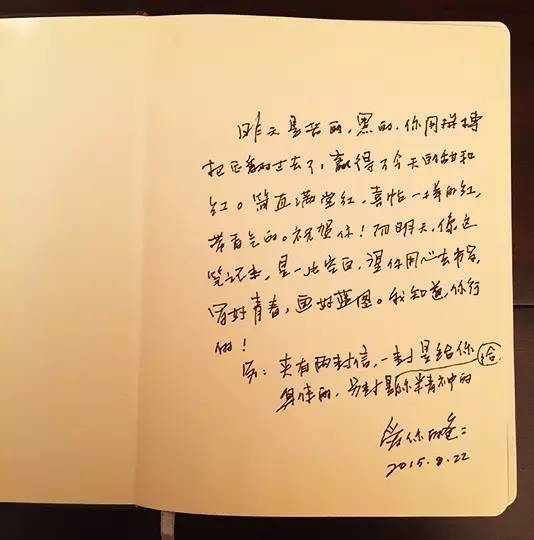 昨天是苦的,黑的.你用拼搏
把它翻过去了,赢得了今天的甜和
红。简直满堂红,喜帖一样的红,
带香气的。祝贺你!而明天,像这
笔记本,是一片空白,你用心去书写,
写好青春,画好蓝图。我知道,你行
的!
另:夹有两封信,一封是给你
身体的,另封是给你精神的
爱你的爸:
2015.8.22